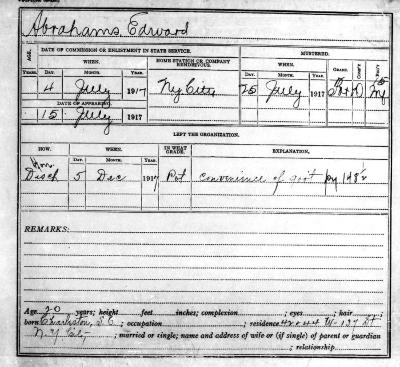 Abrahams, Edward
AGE. DATE OF COMMISSION OR ENLISTMENT IN STATE SERVICE. HOME STATION OR COMPANY RENDEZVOUS. MUSTERED. GRADE. COMP'Y REG'T
YEARS. WHEN. WHEN.
DAY. MONTH. YEAR. DAY. MONTH. YEAR.
4 July 1917 Ny City 25 July 1917 Pvt D Inf
DATE OF APPEARING.
15 July 1917
LEFT THE ORGANIZATION.
HOW. WHEN. IN WHAT GRADE. EXPLANATION.
DAY. MONTH. YEAR.
Hon.
Disch 5 Dec 1917 Pvt convenience of govt
REMARKS:
Age 20 years; height feet inches; complexion ; eyes ; hair ;
born Charleston, S.C. ; occupation ; residence 42 & 44 W-137 St
N.Y. City ; married or single; name and address of wife or (if single) of parent or guardian
; relationship